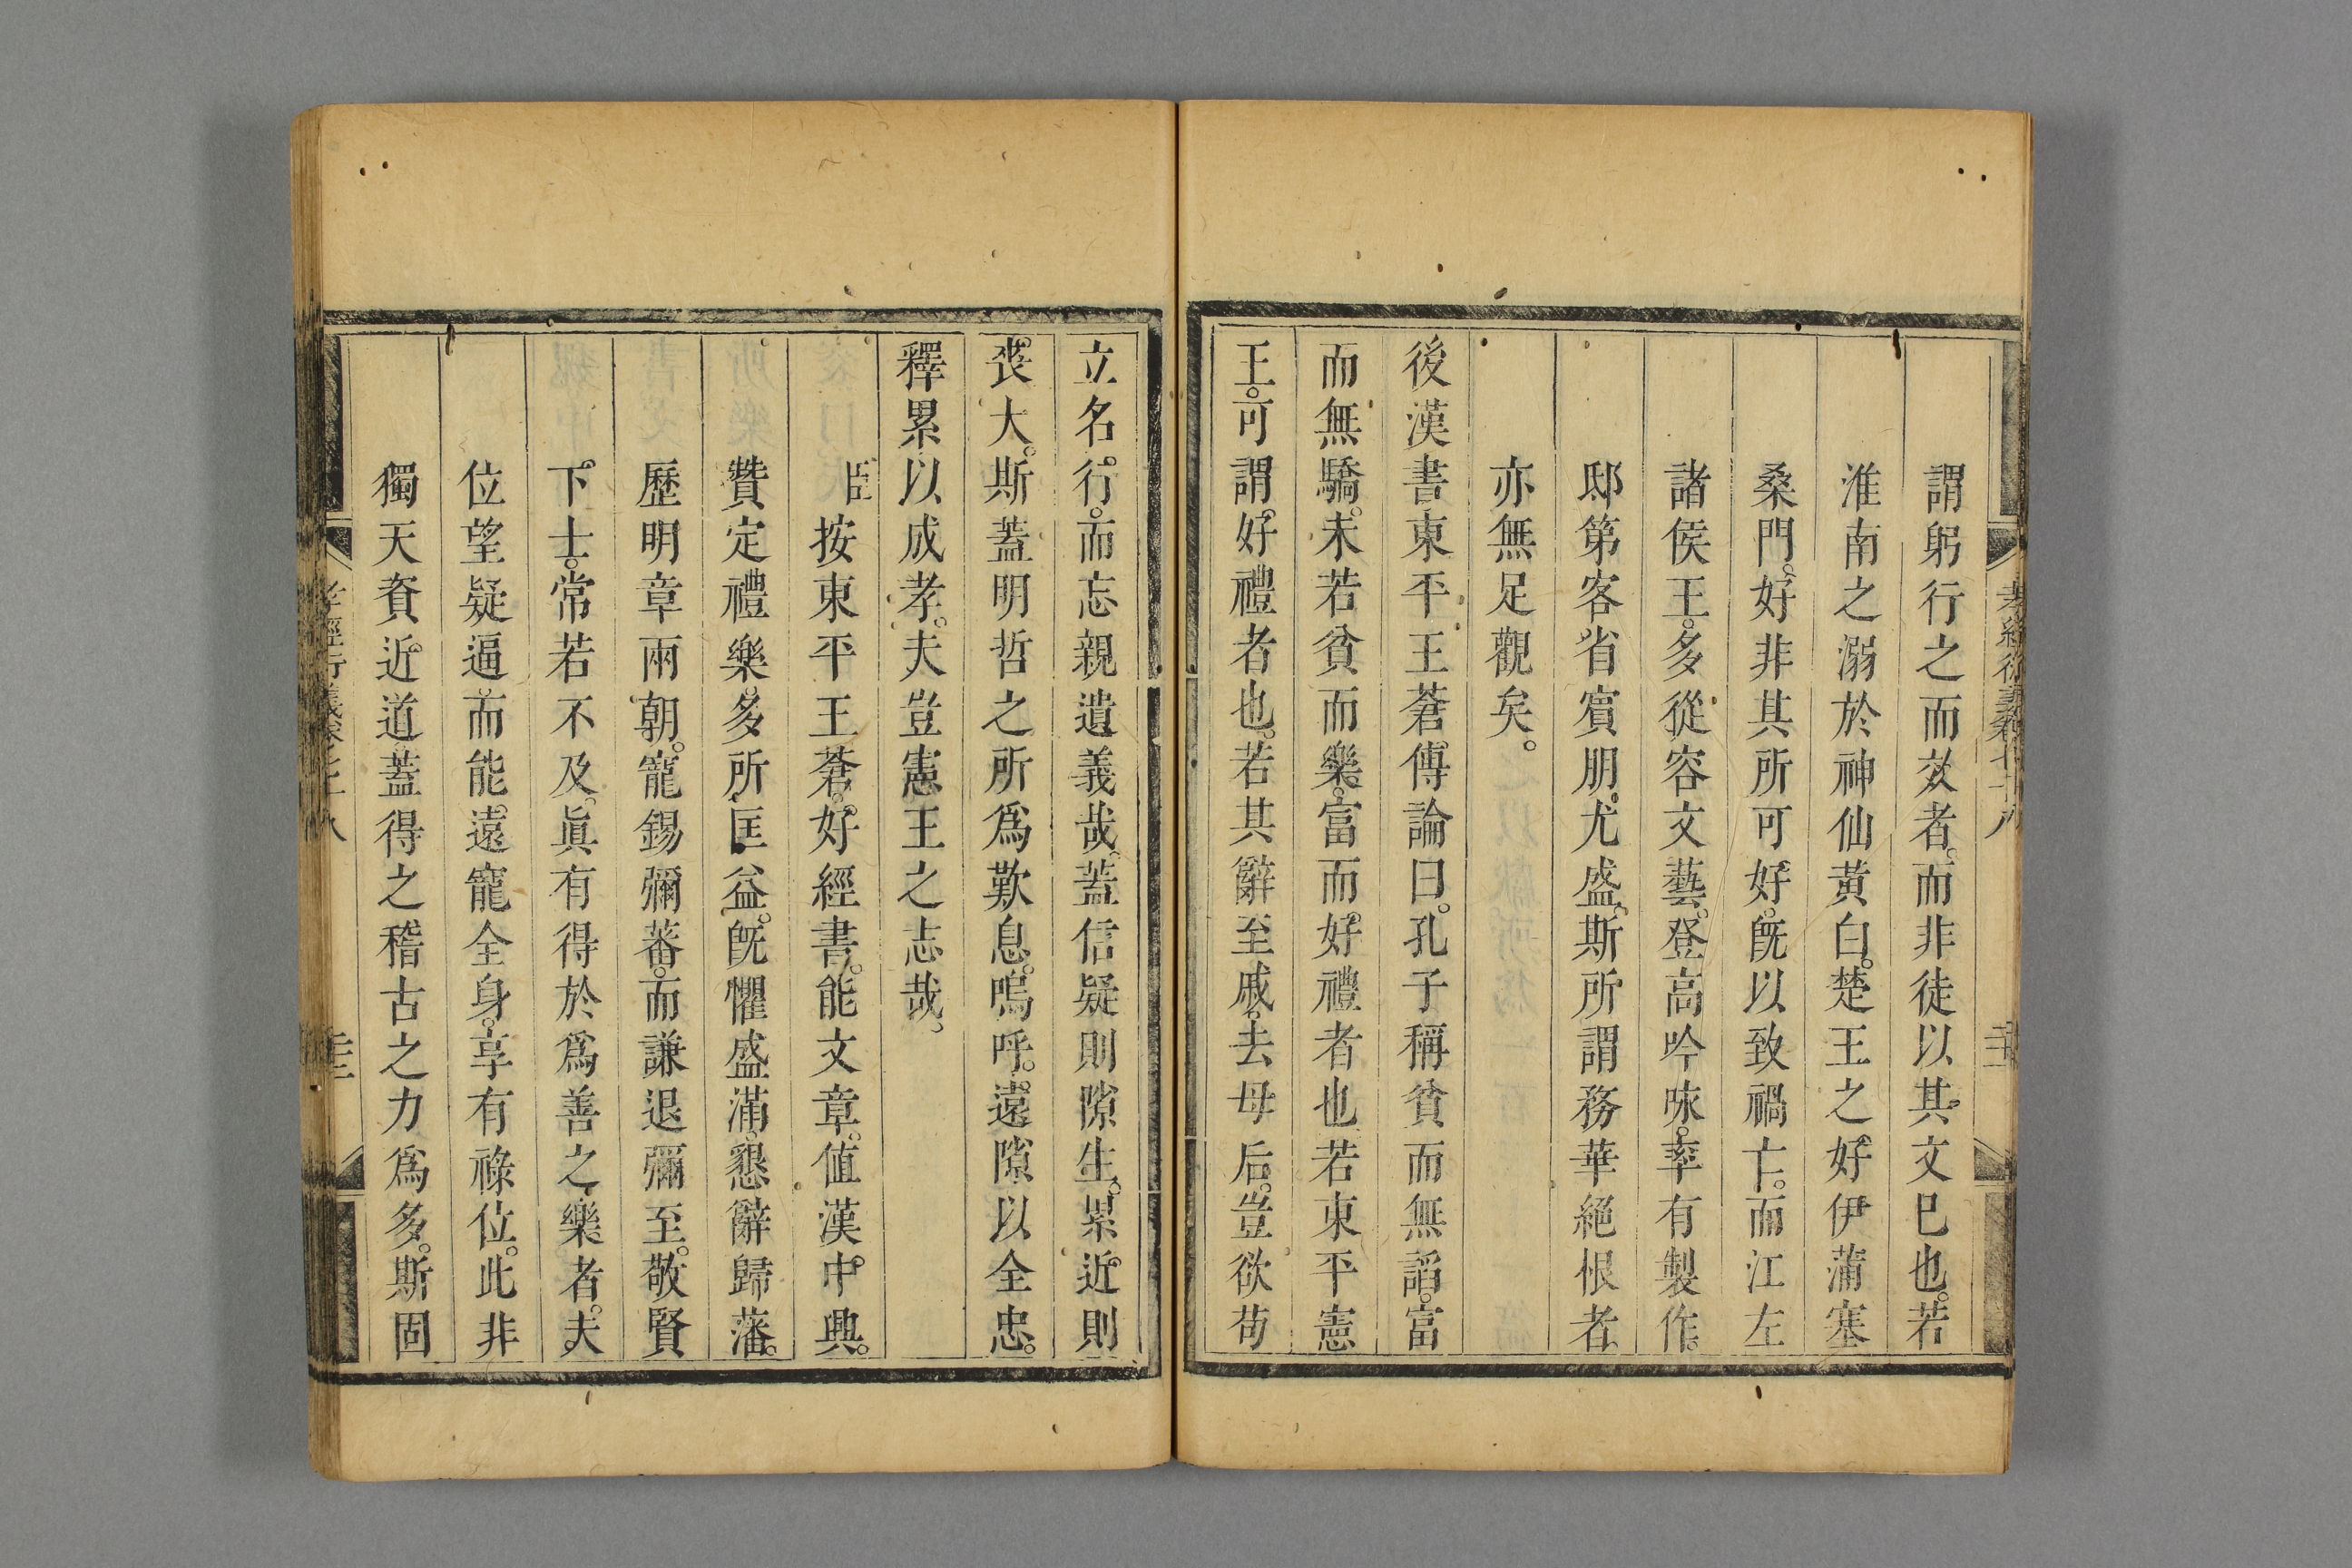 謂躬行之而效者。而非徒以其文巳也。若
淮南之溺於神仙黃白。楚王之好伊蒲塞
桑門。好非其所可好。旣以致禍亡。而江左
諸侯王。多從容文藝。登高吟咏。率有製作。
邸第客省賓朋。尤盛。斯所謂務華絕根者。
亦無足觀矣。
後漢書東平王蒼傳論曰。孔子稱貧而無謟。富
而無驕。未若貧而樂。富而好禮者也若東平憲
王。可謂好禮者也。若其辭至戚。去母后。豈欲苟
立名行。而忘親遺義哉。蓋信疑則隙生。累近則
喪大。斯蓋明哲之所爲歎息。嗚呼。遠隙以全忠。
釋累以成孝。夫豈憲王之志哉。
臣按東平王蒼。好經書。能文章。値漢中興。
贊定禮樂。多所匡益。旣懼盛滿。懇辭歸藩。
歷明章兩朝。寵錫彌蕃。而謙退彌至。敬賢
下士。常若不及。眞有得於爲善之樂者。夫
位望疑逼而能遠寵全身。享有祿位。此非
獨天資近道蓋得之稽古之力爲多。斯固